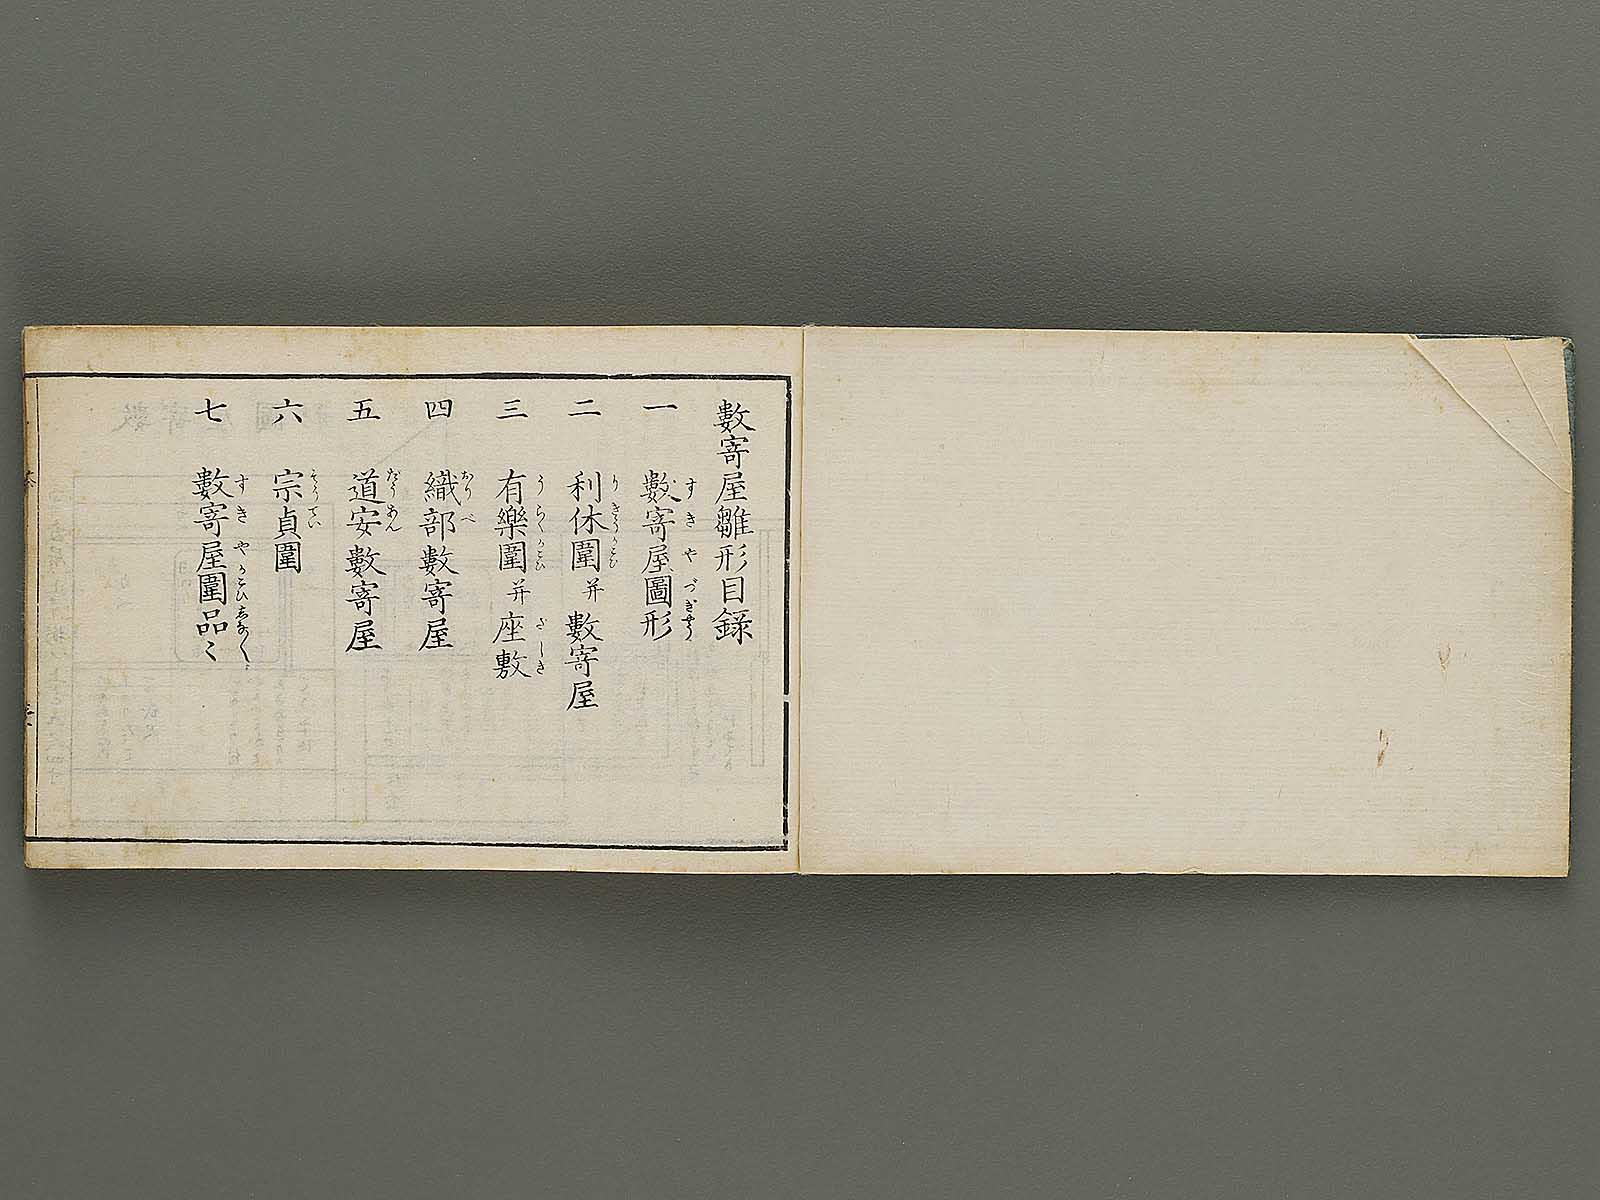 數寄屋雛形目録
一 數寄屋圖形
二 利休圍并數寄屋
三 有樂圍并座敷
四 織部數寄屋
五 道安數寄屋
六 宗貞圍
七 數寄屋圍品〻